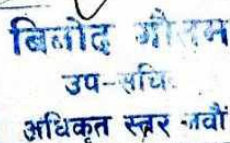 बिनोद गौतम
उप-सचि
अधिकृत स्तर नवौं